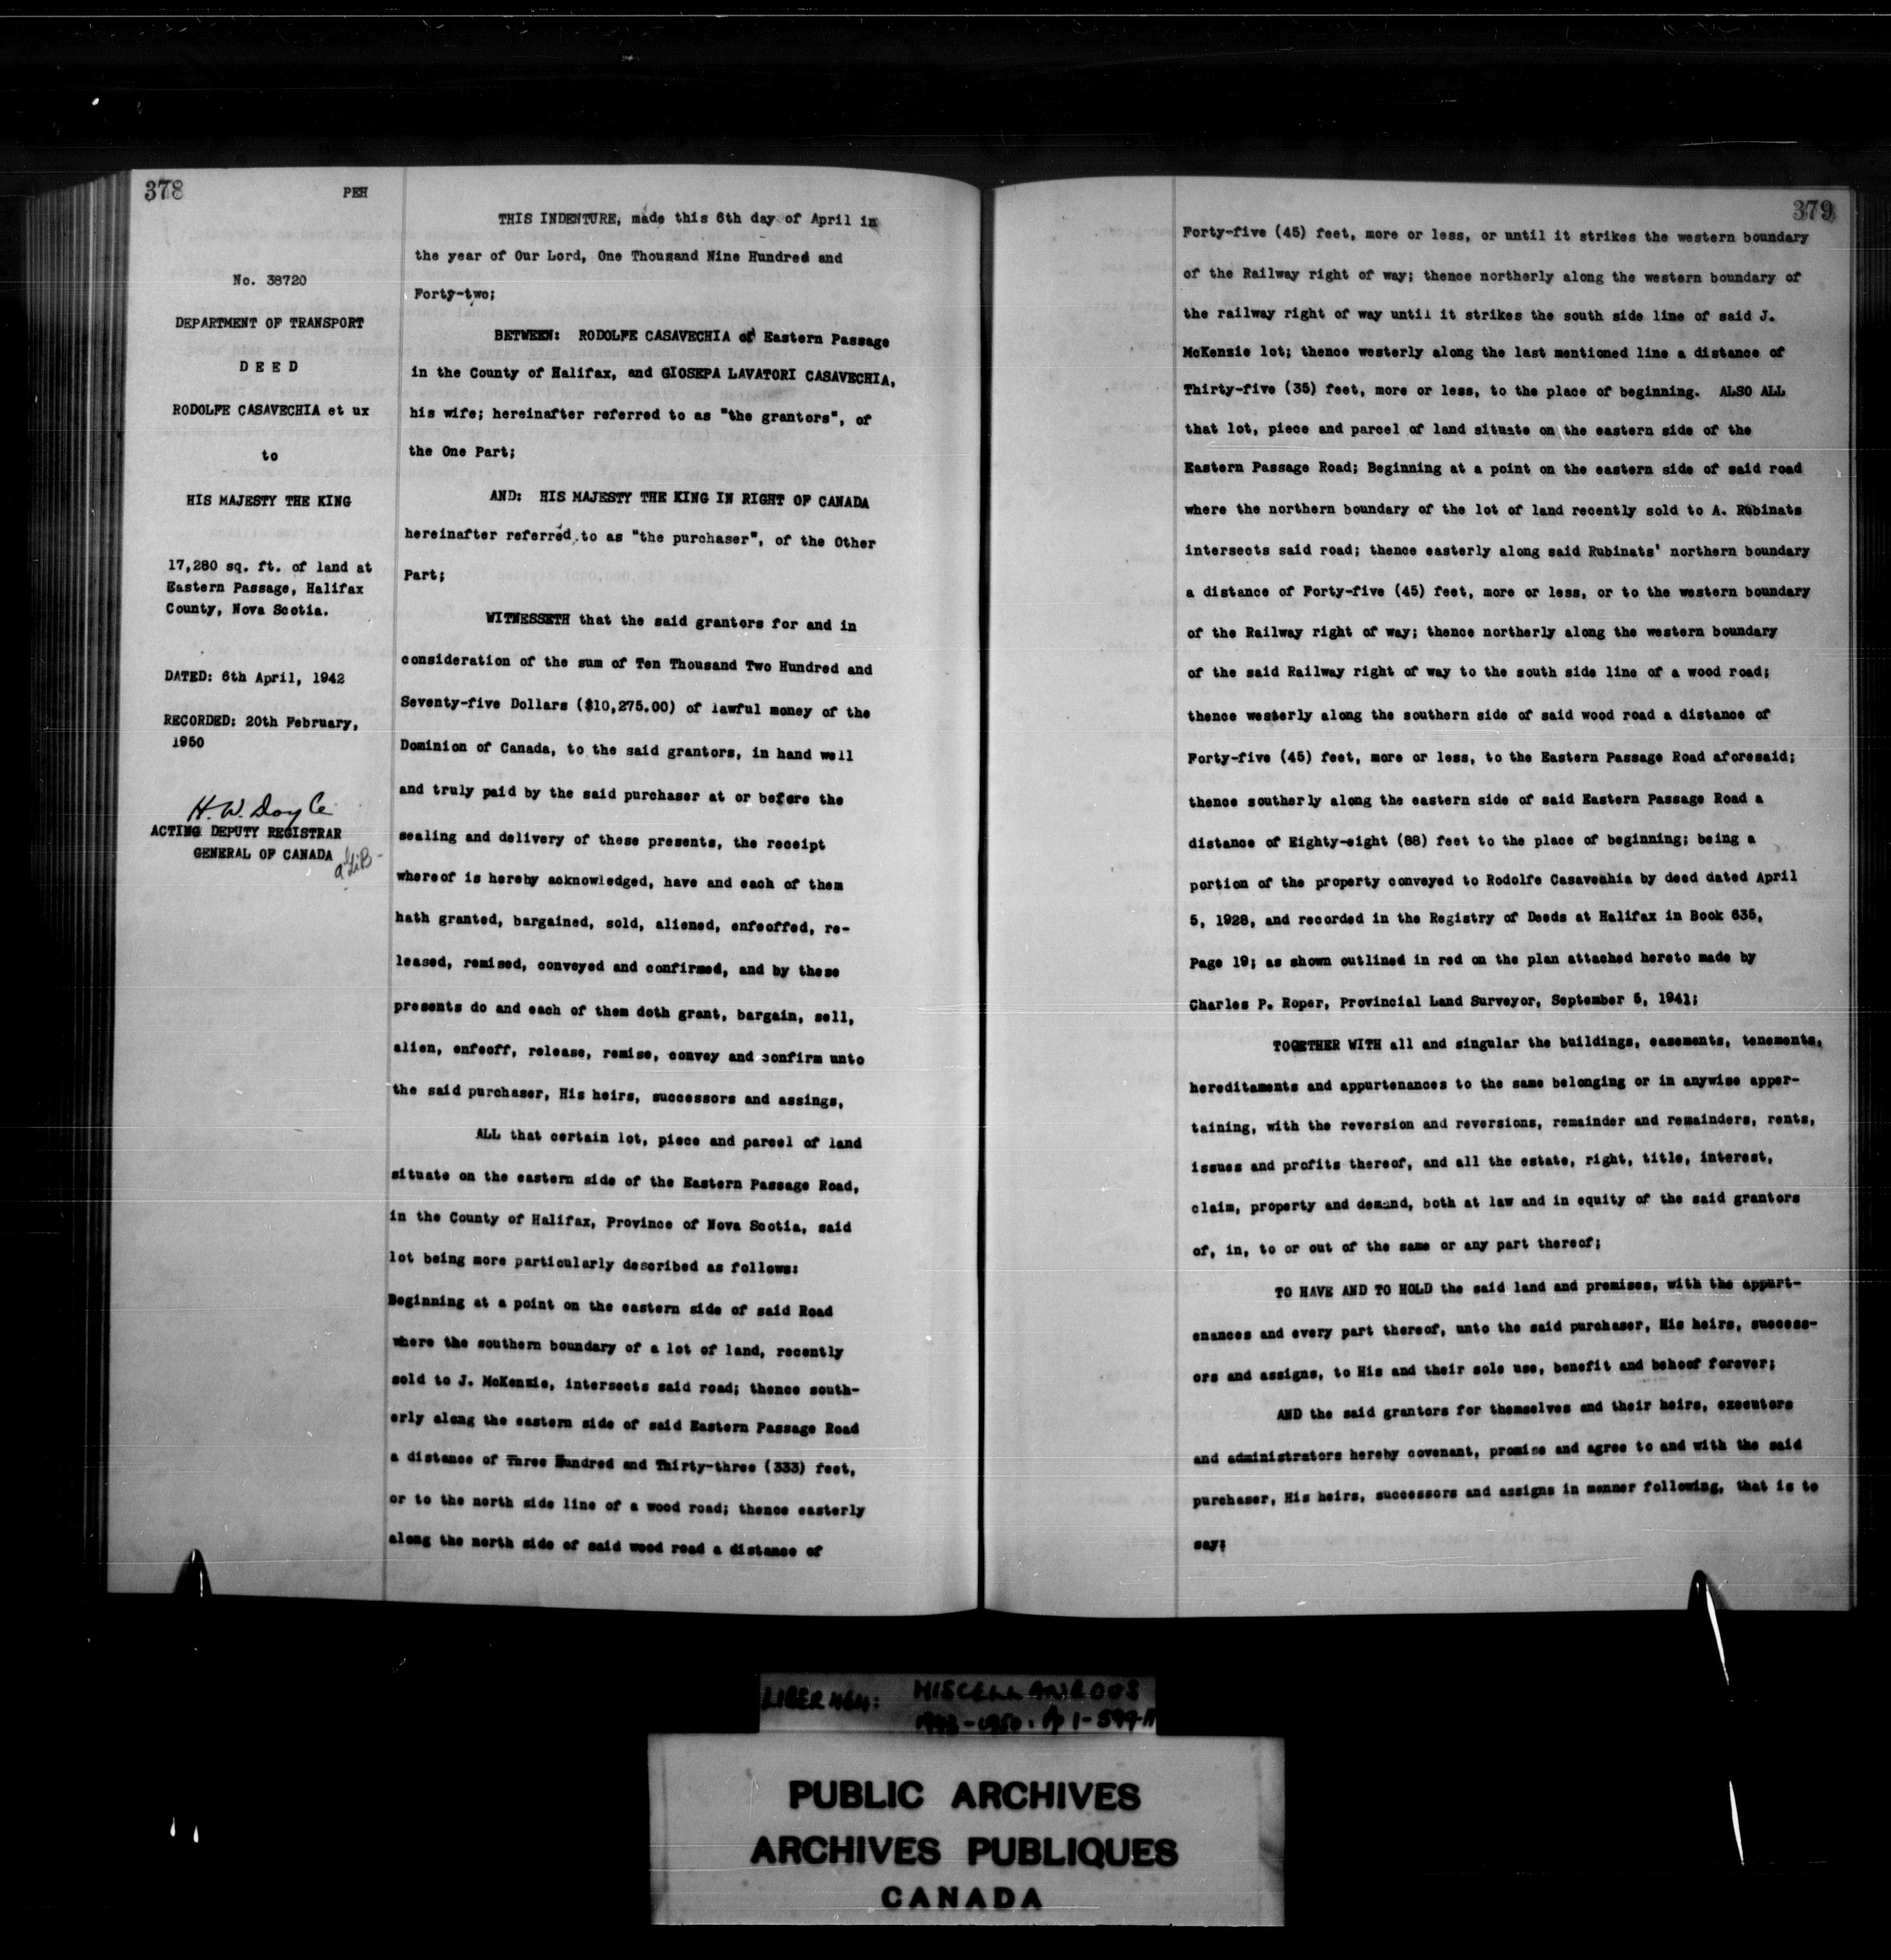 378
PEH
No. 38720
DEPARTMENT OF TRANSPORT
D E E D
RODOLFE CASAVECHIA et ux
to
HIS MAJESTY THE KING
17,280 sq. ft. of land at
Eastern Passage, Halifax
County, Nova Scotia.
DATED: 6th April, 1942
RECORDED: 20th February,
1950
H. W. Doyle
ACTING DEPUTY REGISTRAR
GENERAL OF CANADA
THIS INDENTURE, made this 6th day of April in
the year of Our Lord, One Thousand Nine Hundred and
Forty-two;
BETWEEN: RODOLFE CASAVECHIA of Eastern Passage
in the County of Halifax, and GIOSEPA LAVATORI CASAVECHIA,
his wife; hereinafter referred to as "the grantors", of
the One Part;
AND: HIS MAJESTY THE KING IN RIGHT OF CANADA
hereinafter referred to as "the purchaser", of the Other
Part;
WITNESSETH that the said grantors for and in
consideration of the sum of Ten Thousand Two Hundred and
Seventy-five Dollars ($10,275.00) of lawful money of the
Dominion of Canada, to the said grantors, in hand well
and truly paid by the said purchaser at or before the
sealing and delivery of these presents, the receipt
whereof is hereby acknowledged, have and each of them
hath granted, bargained, sold, aliened, enfeoffed, re-
leased, remised, conveyed and confirmed, and by these
presents do and each of them doth grant, bargain, sell,
alien, enfeoff, release, remise, convey and confirm unto
the said purchaser, His heirs, successors and assings,
ALL that certain lot, piece and parcel of land
situate on the eastern side of the Eastern Passage Road,
in the County of Halifax, Province of Nova Scotia, said
lot being more particularly described as follows:
Beginning at a point on the eastern side of said Road
where the southern boundary of a lot of land, recently
sold to J. McKenzie, intersects said road; thence south-
erly along the eastern side of said Eastern Passage Road
a distance of Three Hundred and Thirty-three (333) feet,
or to the north side line of a wood road; thence easterly
along the north side of said wood road a distance of
379
Forty-five (45) feet, more or less, or until it strikes the western boundary
of the Railway right of way; thence northerly along the western boundary of
the railway right of way until it strikes the south side line of said J.
McKenzie lot; thence westerly along the last mentioned line a distance of
Thirty-five (35) feet, more or less, to the place of beginning. ALSO ALL
that lot, piece and parcel of land situate on the eastern side of the
Eastern Passage Road; Beginning at a point on the eastern side of said road
where the northern boundary of the lot of land recently sold to A. Rubinats
intersects said road; thence easterly along said Rubinats' northern boundary
a distance of Forty-five (45) feet, more or less, or to the western boundary
of the Railway right of way; thence northerly along the western boundary
of the said Railway right of way to the south side line of a wood road;
thence westerly along the southern side of said wood road a distance of
Forty-five (45) feet, more or less, to the Eastern Passage Road aforesaid;
thence southerly along the eastern side of said Eastern Passage Road a
distance of Eighty-eight (88) feet to the place of beginning; being a
portion of the property conveyed to Rodolfe Casavechia by deed dated April
5, 1928, and recorded in the Registry of Deeds at Halifax in Book 635,
Page 19; as shown outlined in red on the plan attached hereto made by
Charles P. Roper, Provincial Land Surveyor, September 5, 1941;
TOGETHER WITH all and singular the buildings, easements, tenements,
hereditaments and appurtenances to the same belonging or in anywise apper-
taining, with the reversion and reversions, remainder and remainders, rents,
issues and profits thereof, and all the estate, right, title, interest,
claim, property and demand, both at law and in equity of the said grantors
of, in, to or out of the same or any part thereof;
TO HAVE AND TO HOLD the said land and premises, with the appurt-
enances and every part thereof, unto the said purchaser, His heirs, success-
ors and assigns, to His and their sole use, benefit and behoof forever;
AND the said grantors for themselves and their heirs, executors
and administrators hereby covenant, promise and agree to and with the said
purchaser, His heirs, successors and assigns in manner following, that is to
say:
LIBER 464: MISCELLANEOUS
PUBLIC ARCHIVES
ARCHIVES PUBLIQUES
CANADA